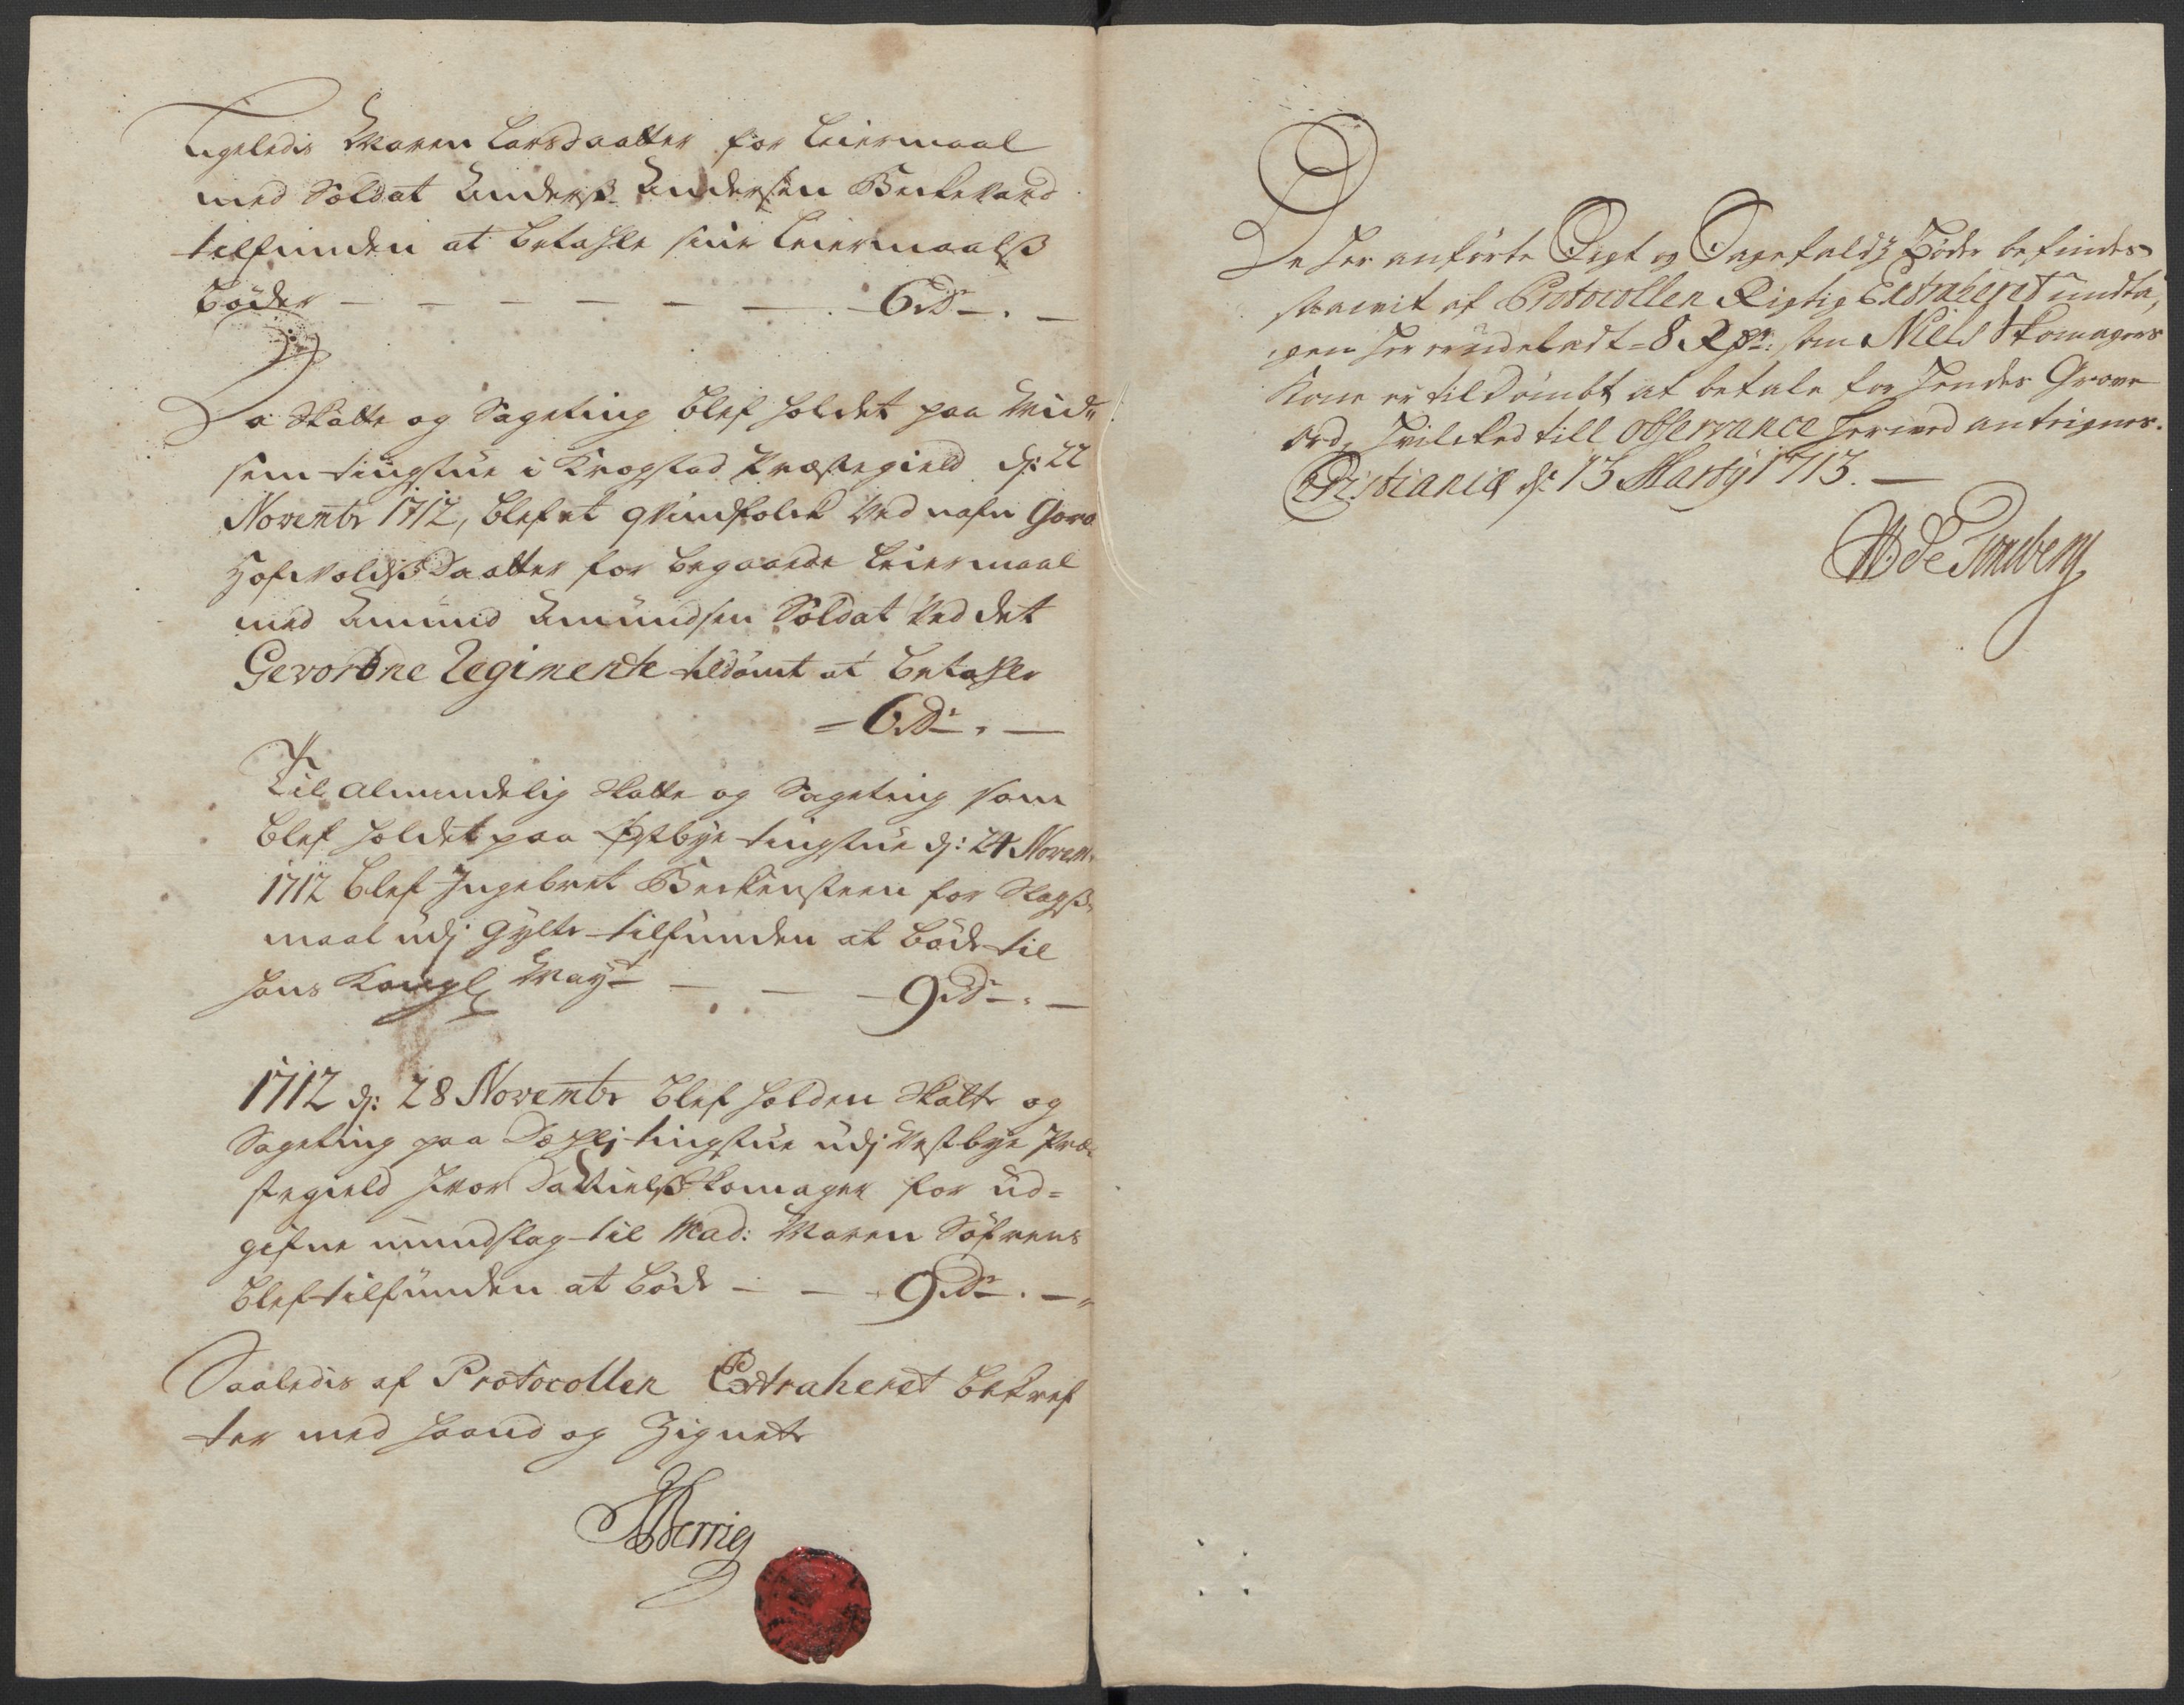 Ligeledis Maren Larsdaatter for Leiermaal
med Soldat Anderß Andersen Berkevand
tilfunden at betahle sine Leiermaalß
böder — — — — — — 6 Dr — . —
Da Skatte og Sageting blef holdet paa Vid„
sem tingstue i Krogstad Præstegield d: 22
Novembr 1712, blef et qvindfolck ved nafn Goro
HofvoldßDaatter for begaaede Leiermaal
med Amund Amundsen Soldat ved det
Gevorbne Regimente tildömt at betahle
= 6 Dr . —
Til almindelig Skatte og Sageting som
blef holdet paa Østbye tingstue d: 24 Novem
1712 blef Ingebret Berkensteen for Slagß
maal udj gylte tilfunden at böde til
hans Kongl May — — — 9 Dr — . —
1712 d: 28 Novembr blef holden Skatte og
Sageting paa Dæhlj tingstue udj Vestbye Præ
stegield hvor da Nielß Skomager for ud=
gifne mundslag til Mad: Maren Söfrens
blef tilfunden at böde — — 9 Dr . —
Saaledis af Protocollen Extraheret bekref
ter med haand og Zignete
NWerrig
De her anförte Sigt og Sagefaldz Böder befindes
saavit af Protocollen Rigtig Extraheret undta,
gen her er udeladt = 8 Rdr: som Niels Skomagers
Kone er tildömbt at betale for hendes Grove
ord, hvilcked till observance herved antegnes.
Christiania d: 13 Marty 1713. —
W. de Tonsberg